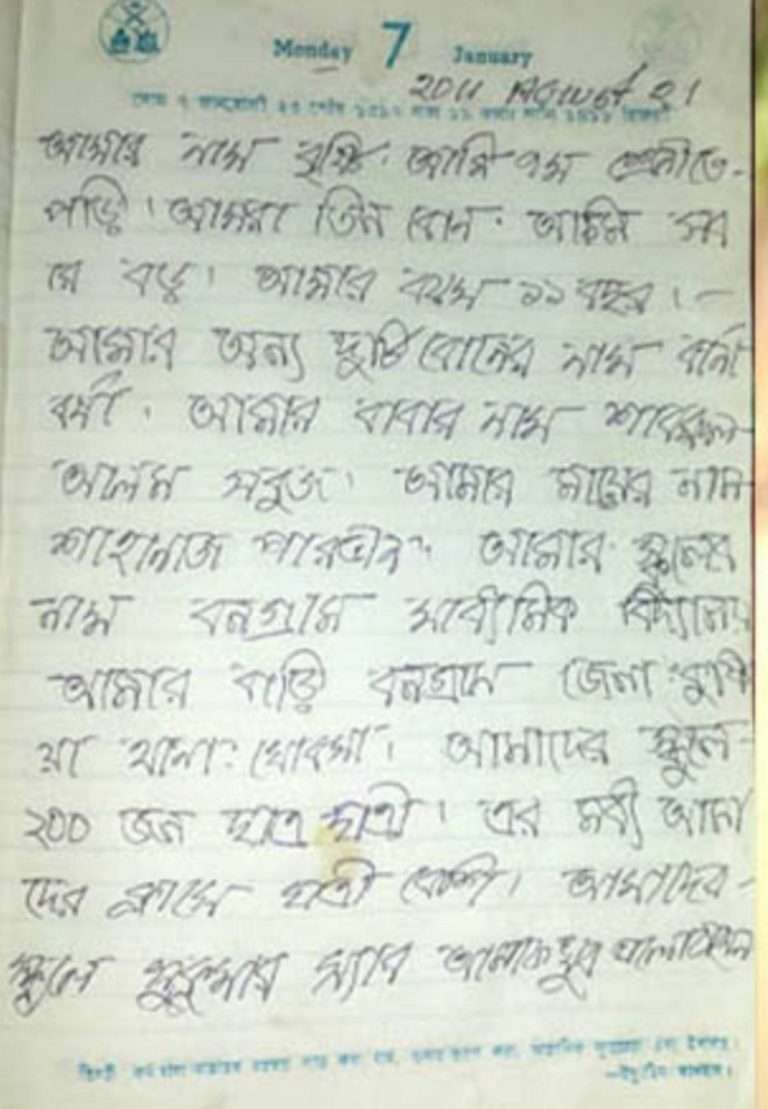 Monday 7 January
২০১১ August ২১
আমার নাম বৃষ্টি। আমি ৭ম শ্রেনীতে
পড়ি। আমরা তিন বোন। আমি সব
বড়। আমার বয়স ১১ বছর।
আমার অন্য দুটি বোনের নাম বর্না
বর্ষা। আমার বাবার নাম
আলম সবুজ। আমার মায়ের নাম
শাহানাজ পারভীন। আমার স্কুলের
নাম বনগ্রাম মাধ্যমিক বিদ্যালয়
আমার বাড়ি বনগ্রাম জেলা: কুষ্টি
য়া থানা: খোকসা। আমাদের স্কুলে
২০০ জন ছাত্র ছাত্রী। এর মধ্যে আমা
দের ক্লাসে ছাত্রী বেশি। আমাদের
স্কুলে স্যার আমাকে খুব